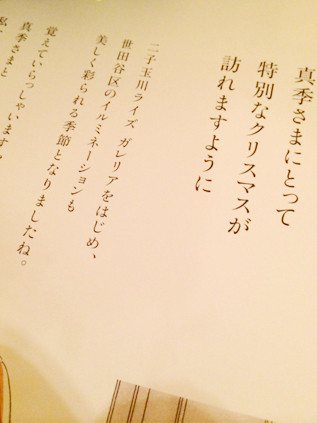 真季さまにとって
特別なクリスマスが
訪れますように
二子玉川ライズ ガレリアをはじめ、
世田谷区のイルミネーションも
美しく彩られる季節となりましたね。
覚えていらっしゃいます
真季さまと
私